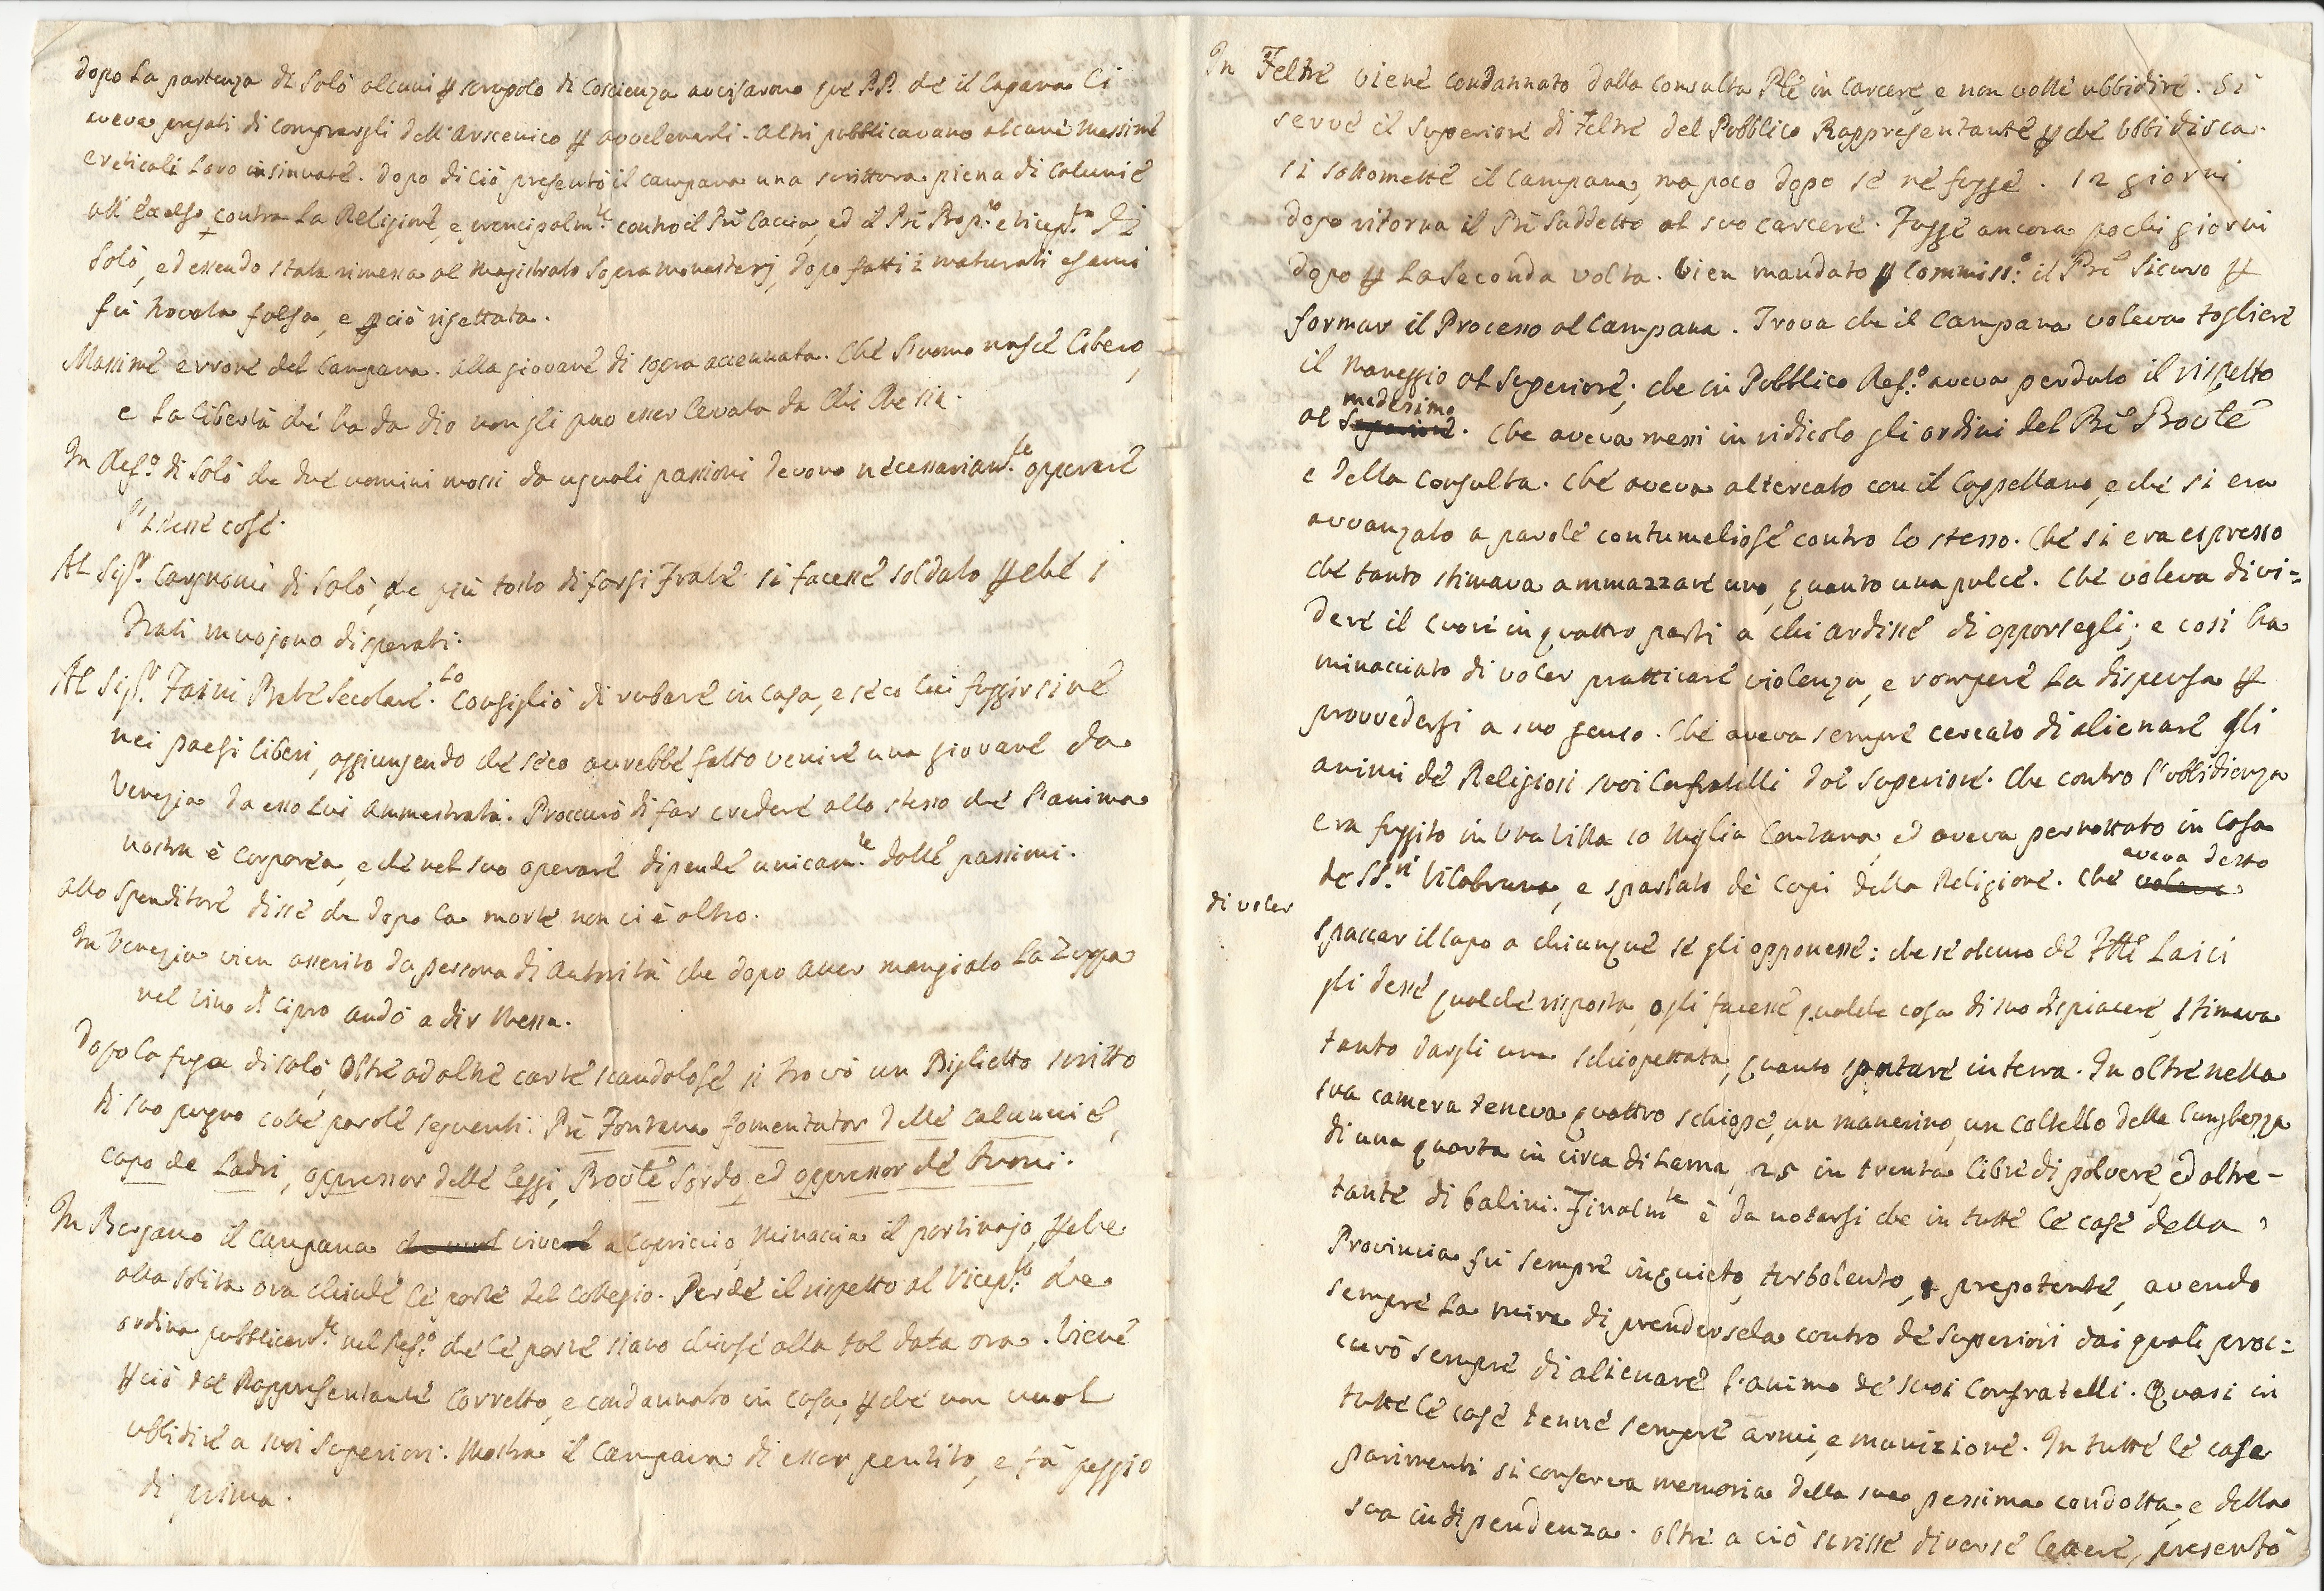 Dopo la partenza di Salò alcuni p scrupolo di Coscienza avvisarono que PP. che il Capana li
aveva pregati di comprargli dell'Arscenico p avvelenarli. Altri pubblicavano alcune Massime
ereticali loro insinuate. Dopo di ciò presentò il Campana una scrittura piena di Calunie
all'Excelso contra la Religione, e prencipalmte contro il Prê Caccia, ed il Prê Prep.to e Vicep.to di
Salò, ed essendo stata rimessa al Magistrato Sopra Monasterj, dopo fatti i maturati esami
fù trovata falsa, e pciò rigettata.
Massime erronee del Campana. Alla giovane di sopra accennata. Che l'uomo nasce libero,
e la libertà che ha da Dio non gli può esser levata da chi che sia.
In Ref.o di Salò che due uomini mossi da uguali passioni devono necessariam.te opperare
l'istesse cose.
Al Sig.r Cargnoni di Salò, che più tosto di farsi Frate si facesse soldato pchè i
Frati muojono disperati.
Al Sig.r Faini Prete Secolare. Lo Consigliò di rubare in Casa, e seco lui fuggirsine
nei paesi liberi, aggiungendo che seco avrebbe fatto venire una giovane da
Venezia da esso lui ammestrata. Proccurò di far credere allo stesso che l'anima
nostra è Corporea, e che nel suo operare dipende unicam.te dalle passioni.
Allo Spenditore disse che dopo la morte non ci è altro.
In Venezia vien asserito da persona di Autorità che dopo aver mangiato la Zuppa
nel vino di Cipro andò a dir Messa.
Dopo la fuga di Salò, oltre ad altre carte scandolose si trovò un Biglietto scritto
di suo pugno colle parole seguenti: Prê Fontana fomentator delle calunnie,
capo de Ladri, oppressor delle leggi, Provle Sordo, ed oppressor de buoni.
In Bergamo il Campana che vuol vivere a Capriccio, Minaccia il portinajo, pche
alla solita ora chiude le porte del Collegio. Perde il rispetto al Vicep.to che
ordina pubblicam.te nel Ref.o che le porte siano chiuse alla tal data ora. Viene
pciò dal Rappresentante Corretto, e condannato in Casa, pche non vuol
ubbidire a suoi Superiori. Mostra il Campana di esser pentito, e fà peggio
di prima.
In Feltre viene condannato dalla Consulta Ple in Carcere, e non volle ubbidire. Si
serve il Superiore di Feltre del Pubblico Rappresentante pchè ubbidisca.
Si sottomette il Campana, ma poco dopo se ne fugge. 12 giorni
dopo ritorna il Prê Suddetto al suo carcere. Fugge ancora pochi giorni
dopo p la Seconda volta. Vien mandato p Commiss.o il Prê Sicuro p
formar il Processo al Campana. Trova che il Campana voleva togliere
il Maneggio al Superiore; che in Pubblico Ref.o aveva perduto il rispetto
medesimo
al Superiore. Che aveva messi in ridicolo gli ordini del Prê Provle
e della Consulta. Che aveva altercato con il Cappellano, e che si era
avvanzato a parole contumeliose contro lo stesso. Che si era espresso
che tanto stimava ammazzare uno, quanto una pulce. Che voleva divi=
dere il cuore in quattro parti a chi ardisse di opporsegli; e così ha
minacciato di voler pratticare violenza, e rompere la dispensa p
provvedersi a suo genio. Che aveva sempre cercato di alienare gli
animi de Religiosi suoi Confratelli dal Superiore. Che contro l'ubbidienza
era fuggito in Una Villa 10 Miglia lontana, ed aveva pernottato in Casa
de SS.ri Vilabruna, e sparlato de Capi della Religione. Che voleva
aveva detto
di voler
spaccar il capo a chiunque se gli opponesse: che se alcuno de Ftlli Laici
gli desse qualche risposta, o gli facesse qualche cosa di suo dispiacere, stimava
tanto dargli una schioppettata, quanto sputare in terra. In oltre nella
sua camera teneva quattro schioppe, un manerino, un coltello della lunghezza
di una quarta in circa di Lama, 25 in trenta libre di polvere, ed altre-
tante di balini. Finalmte è da notarsi che in tutte le case della
Provincia fù sempre inquieto, turbolento, e prepotente, avendo
sempre la mira di prendersela contro de Superiori dai quali proc=
curò sempre di alienare l'animo de suoi Confratelli. Quasi in
tutte le case tenne sempre armi, e munizione. In tutte le case
parimenti si conserva memoria della sua pessima condotta, e della
sua indipendenza. Oltre a ciò scrisse diverse lettere, presentò